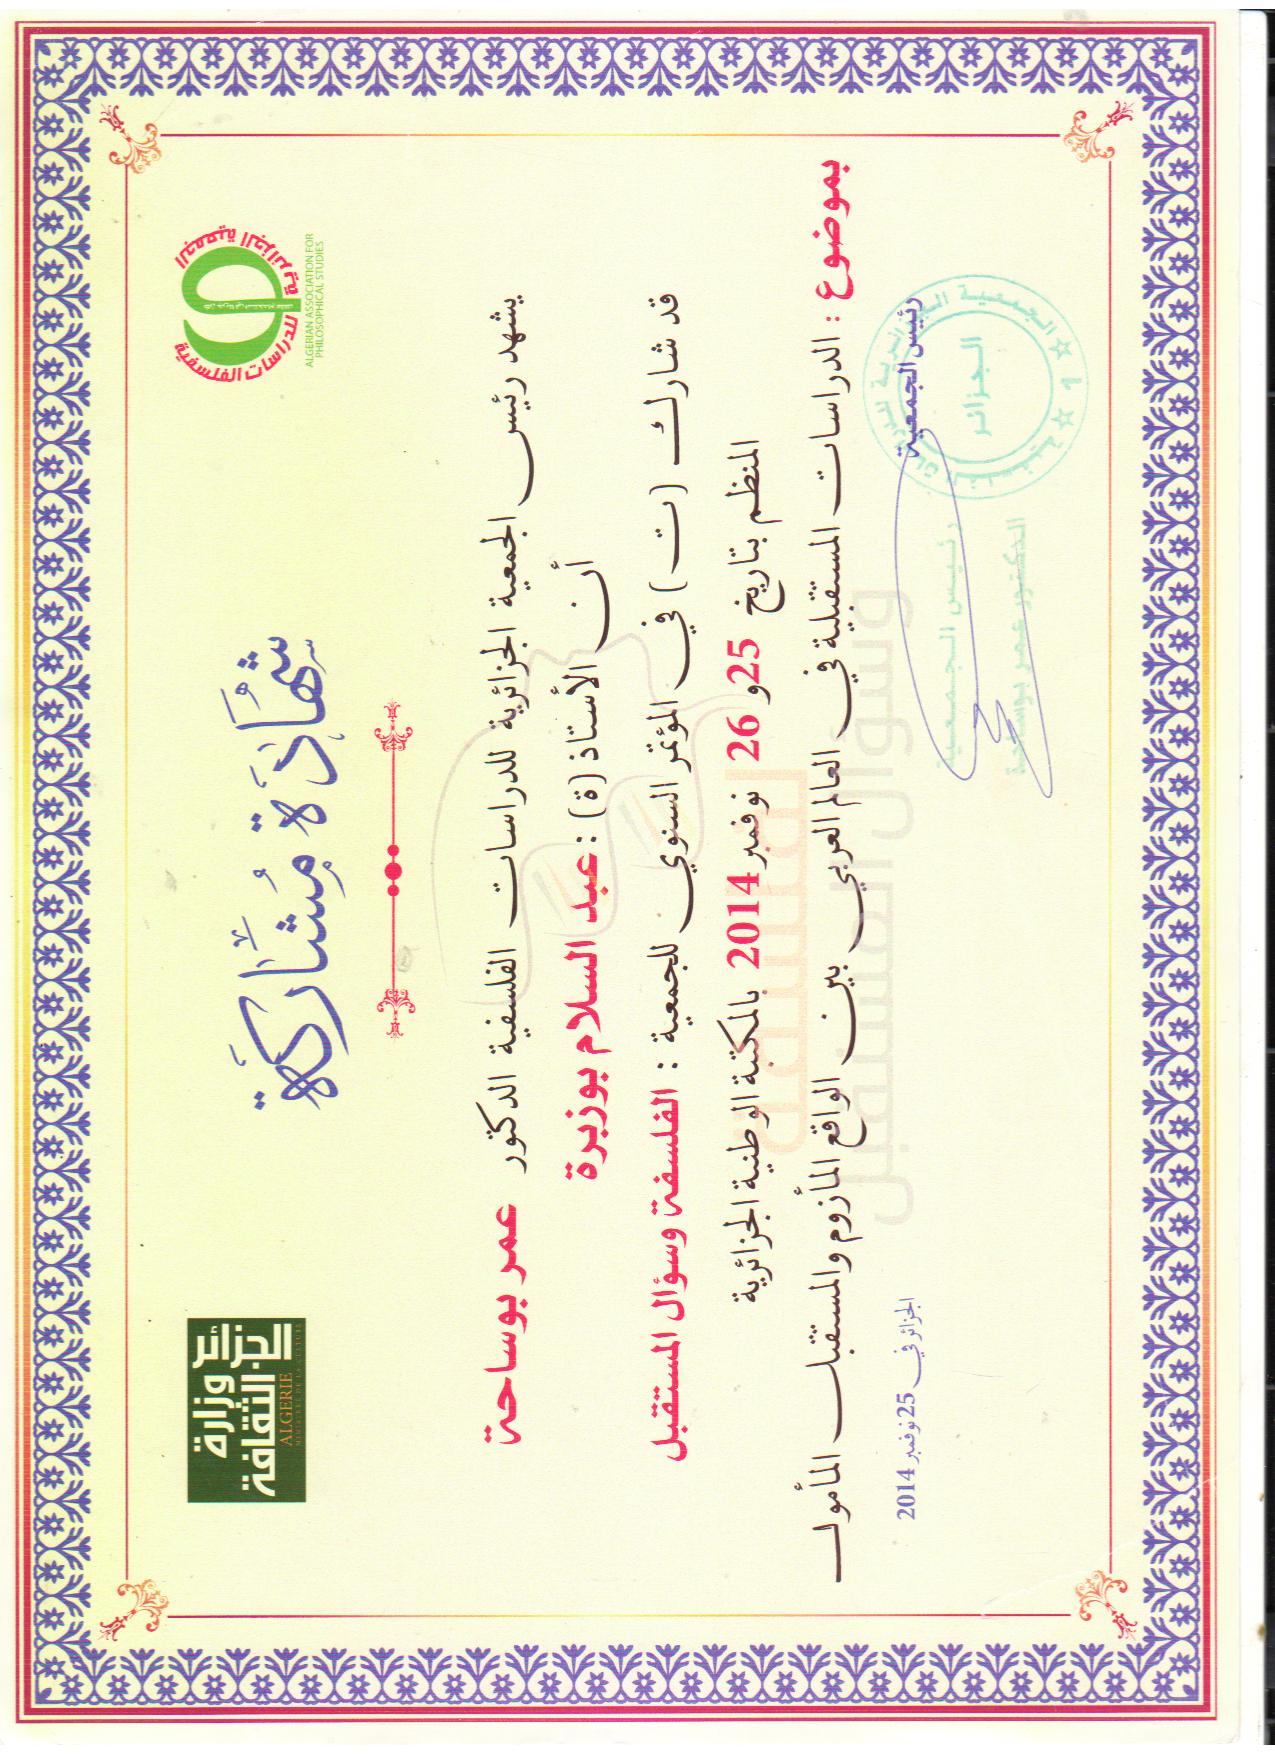 الجزائر وزارة الثقافة
ALGERIE
MINISTERE DE LA CULTURE
الجمعية الجزائرية للدراسات الفلسفية
ALGERIAN ASSOCIATION FOR
PHILOSOPHICAL STUDIES
شهادة مشاركة
يشهد رئيس الجمعية الجزائرية للدراسات الفلسفية الدكتور عمر بوساحة
أن الأستاذ (ة) : عبد السلام بوزبرة
قد شارك (ت) في المؤتمر السنوي للجمعية : الفلسفة وسؤال المستقبل
المنظم بتاريخ 25و 26 نوفمبر 2014 بالمكتبة الوطنية الجزائرية
بموضوع : الدراسات المستقبلية في العالم العربي بين الواقع المأزوم والمستقبل المأمول
الفلسفة
وسؤال المستقبل
رئيس الجمعية
الجزائر في 25 نوفمبر 2014
الجمعية الجزائرية للدراسات الفلسفية
الجزائر
رئيس الجمعية
الدكتور عمر بوساحة